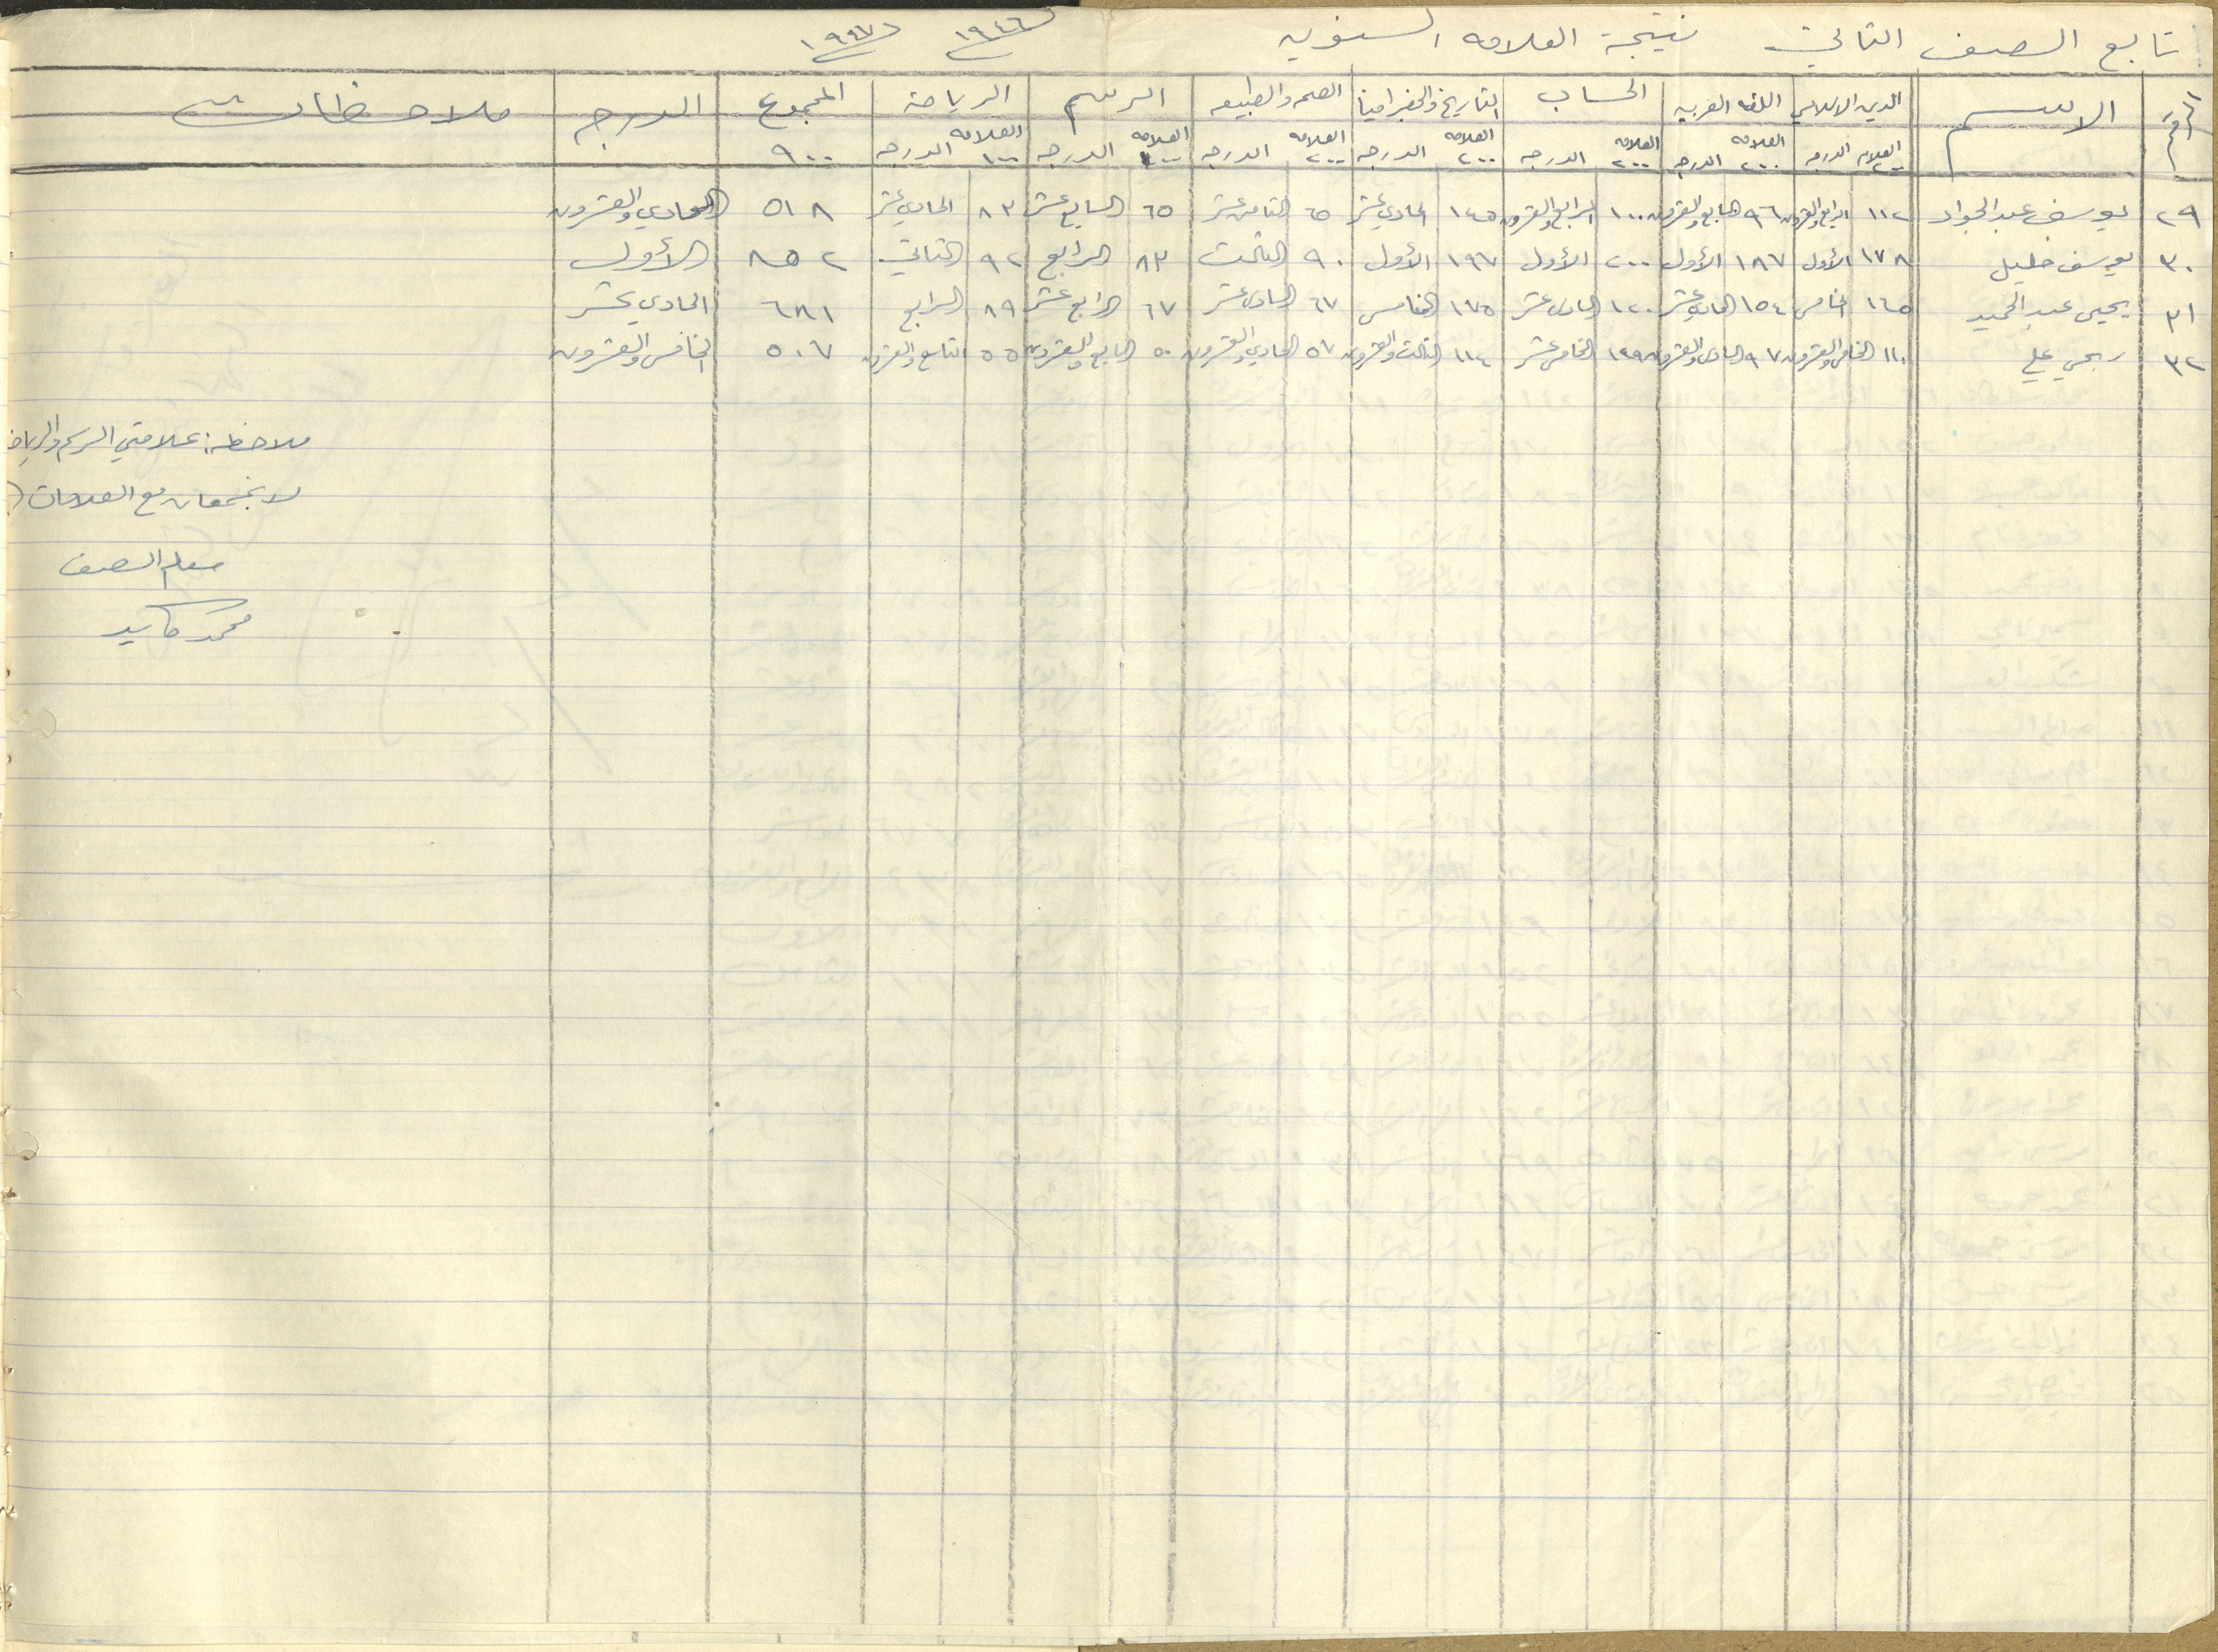 تابع الصف الثاني نتيجة العلامه السنويه ١٩٤٦ ١٩٤٧
الاسم الدين الاسلامي اللغه العربيه الحساب التاريخ والجغرافيا الصحه والطبيعه الرسم الرياضة المجموع الدرجه ملاحظات
العلامه ٢٠٠ الدرجه العلامه ٢٠٠ الدرجه العلامه ٢٠٠ الدرجه العلامه ٢٠٠ الدرجه العلامه ٢٠٠ الدرجه العلامه ١٠٠ الدرجه العلامه ١٠٠ الدرجه ٩٠٠
٢٩ يوسف عبد الجواد ١١٢ الرابع والعشرون ٩٦ السابع والعشرون ١٠٠ الرابع والعشرون ١٤٥ الحادي عشر ٦٥ الثامن عشر ٦٥ السابع عشر ٨٣ الحادي عشر ٥١٨ الحادي والعشرون
٣٠ يوسف خليل ١٧٨ الأول ١٨٧ الأول ٢٠٠ الأول ١٩٧ الأول ٩٠ الثالث ٨٣ الرابع ٩٢ الثاني ٨٥٢ الأول
٣١ يحيى عبد الحميد ١٦٥ الخامس ١٥٤ الحادي عشر ١٢٠ الحادي عشر ١٧٥ الخامس ٦٧ السادس عشر ٦٧ الرابع عشر ٨٩ الرابع ٦٨١ الحادي عشر
٣٢ ربحي علي ١١٠ الخامس والعشرون ٩٧ السادس والعشرون ١٢٩ الخامس عشر ١١٤ الثالث والعشرون ٥٧ الحادي والعشرون ٥٠ السابع والعشرون ٥٥ التاسع والعشرون ٥٠٧ الخامس والعشرون
ملاحظه: علامتي الرسم والرياض
لا تجمعان مع العلامات
معلم الصف
محمد كايد